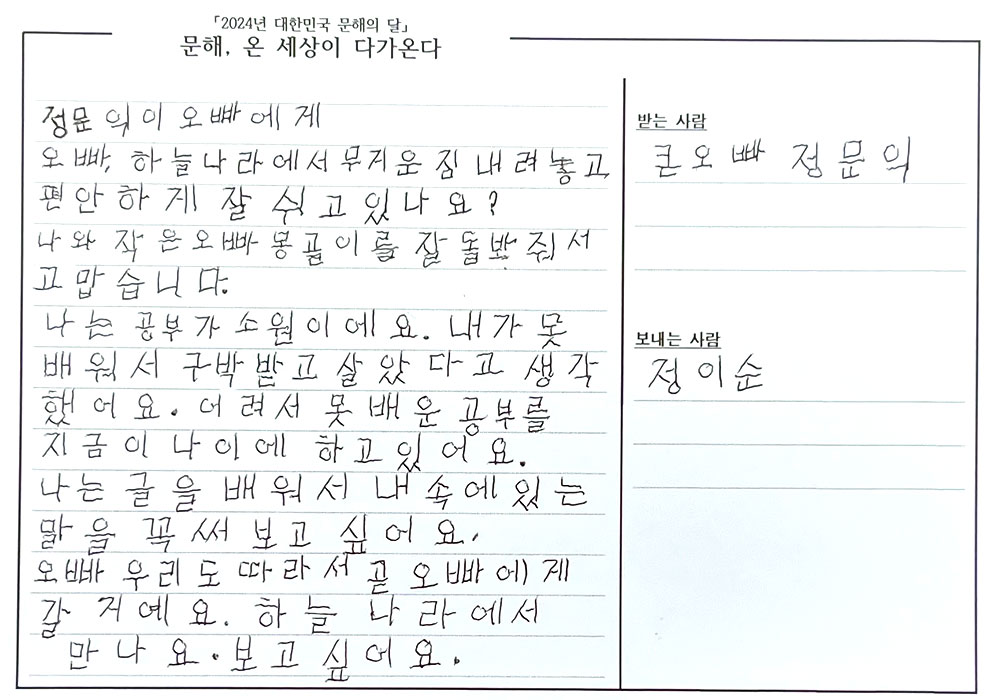 「2024년 대한민국 문해의 달」
문해, 온 세상이 다가온다
정문익이 오빠에게
오빠, 하늘나라에서 무거운 짐 내려놓고
편안하게 잘 쉬고 있나요?
나와 작은오빠 몽골이를 잘 돌봐줘서
고맙습니다.
나는 공부가 소원이에요. 내가 못
배워서 구박받고 살았다고 생각
했어요. 어려서 못 배운 공부를
지금 이 나이에 하고 있어요.
나는 글을 배워서 내 속에 있는
말을 꼭 써 보고 싶어요.
오빠 우리도 따라서 곧 오빠에게
갈 거예요. 하늘 나라에서
만나요. 보고 싶어요.
받는 사람
큰오빠 정문익
보내는 사람
정이순